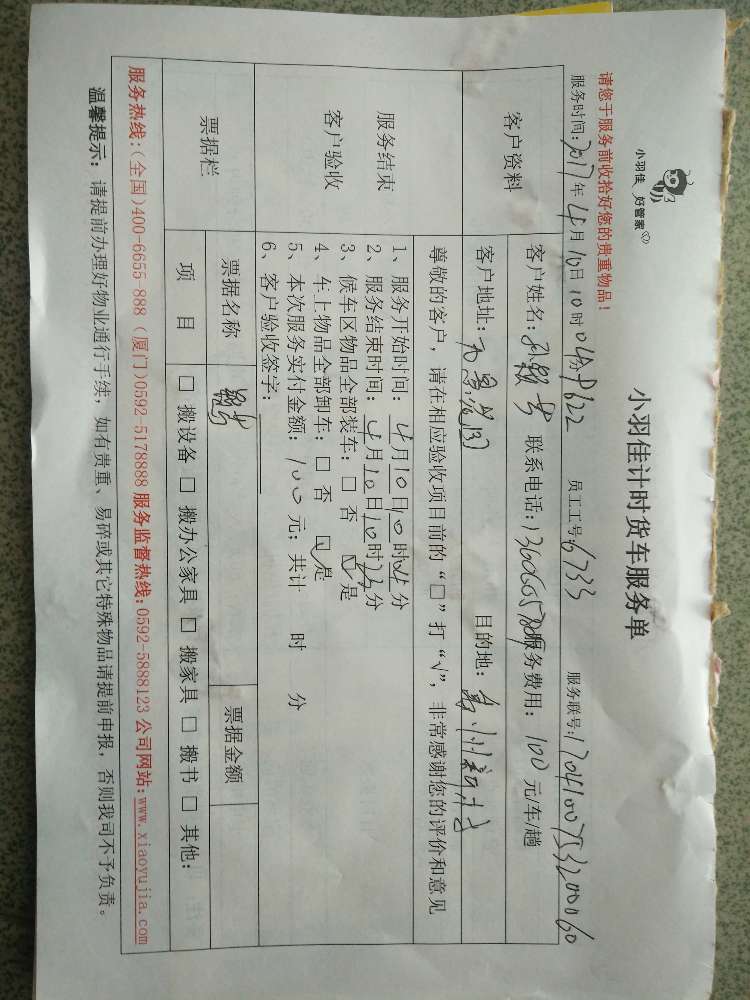 小羽佳 好管家
小羽佳计时货车服务单
请您于服务前收拾好您的贵重物品！
服务时间：2017年4月10日10时04分 员工工号：6733 服务联号：
客户资料
客户姓名： 联系电话： 服务费用：100元/车/趟
客户地址： 目的地：
服务结束
客户验收
尊敬的客户，请在相应验收项目前的“□”打“√”，非常感谢您的评价和意见
1、服务开始时间：4月10日10时04分
2、服务结束时间：4月10日10时分
3、候车区物品全部装车：□ 否 ☑ 是
4、车上物品全部卸车：□ 否 ☑ 是
5、本次服务实付金额：100元；共计 时 分
6、客户验收签字：
票据栏
票据名称 票据金额
项 目 □ 搬设备 □ 搬办公家具 □ 搬家具 □ 搬书 □ 其他：
服务热线：（全国）400-6655-888（厦门）0592-5178888 服务监督热线：0592-5888123 公司网站：www.xiaoyujia.com
温馨提示：请提前办理好物业通行手续，如有贵重、易碎或其它特殊物品请提前申报，否则我司不予负责。